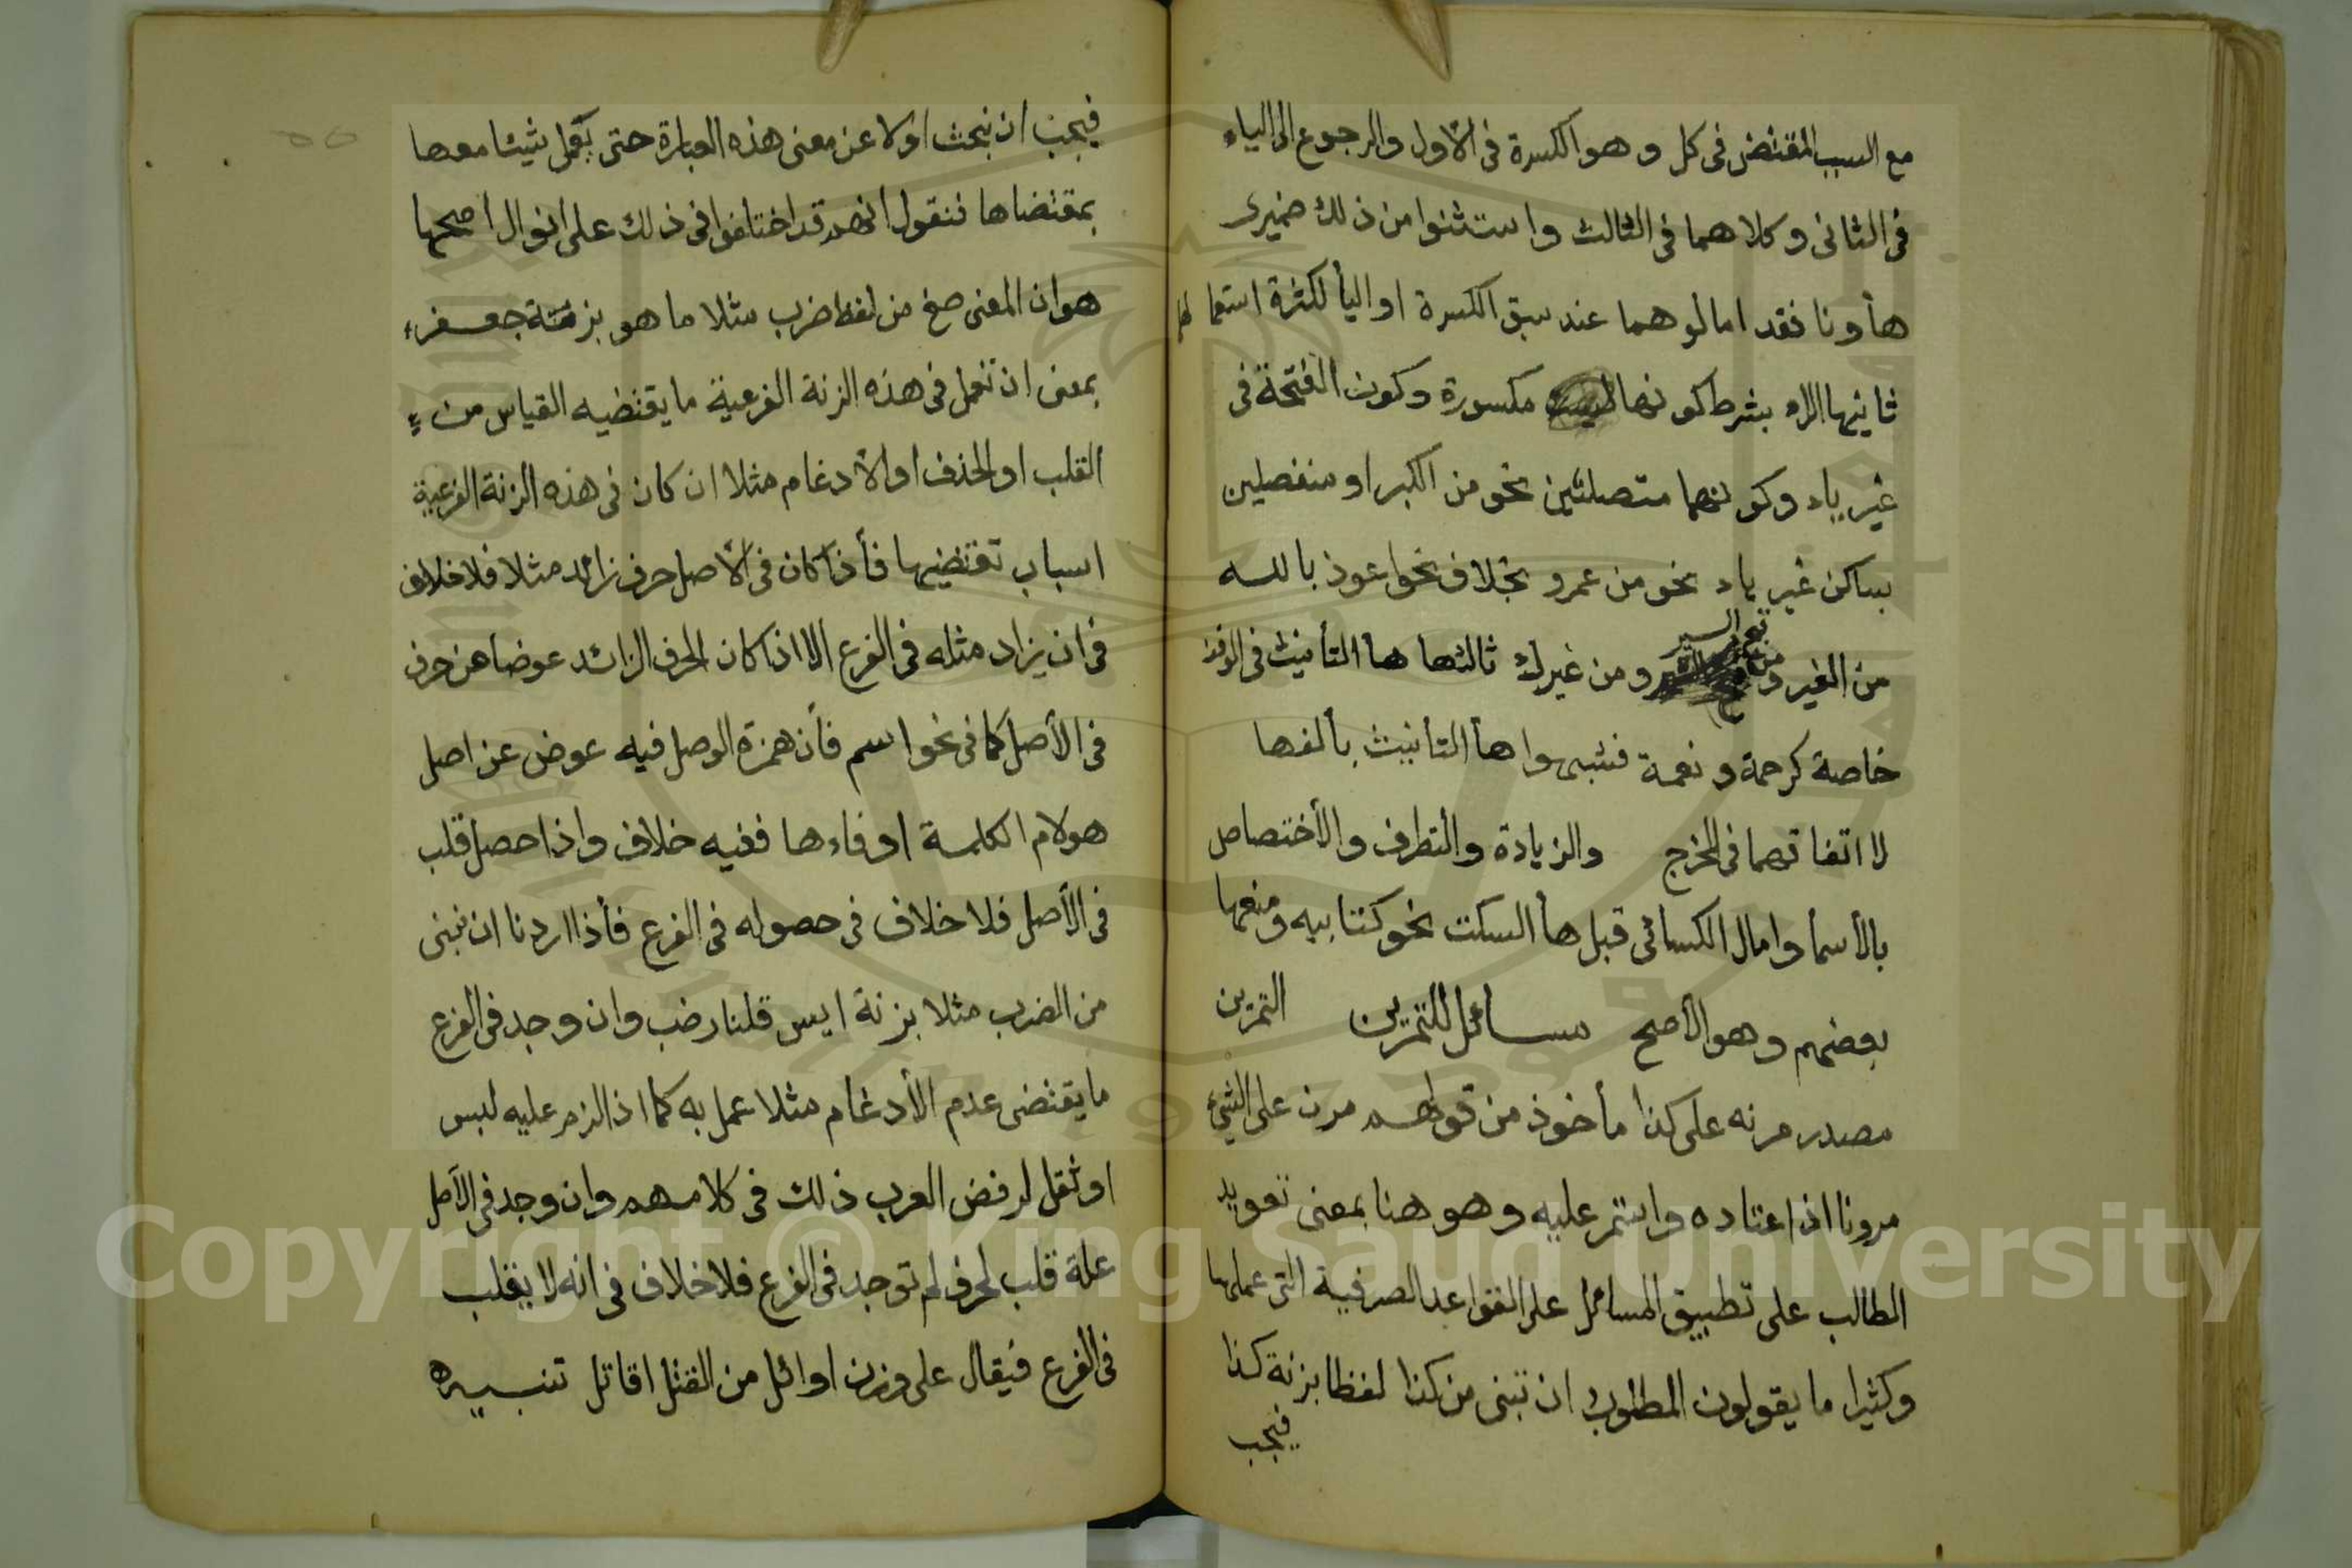 مع السبب المقتضى فى كل وهو الكسرة فى الاول والرجوع الى الياء
فى الثانى وكلاهما فى الثالث واستثنوا من ذلك ضميرى
هأ ونا فقد امالوهما عند سبق الكسرة او اليأ لكثرة استعمالهما
ثانيها الراء بشرط كونها مكسورة وكون الفتحة فى
غير ياء وكونهما متصلتين نحو من الكبر او منفصلين
بساكن غير ياء نحو من عمرو بخلاف نحو اعوذ بالله
من الغير ومن السير ومن غيرك ثالثها هأ التأنيث فى الوقف
خاصة كرحمة ونعمة فشبهوا هأ التأنيث بألفها
لاتفاقهما فى المخرج والزيادة والتطرف والأختصاص
بالأسمأ وامال الكسائى قبل هأ السكت نحو كتابيه ومنعها
بعضهم وهو الأصح مسائل للتمرين التمرين
مصدر مرنه على كذا مأخوذ من قولهم مرن على الشيئ
مرونا اذا اعتاده واستمر عليه وهو هنا بمعنى تعويد
الطالب على تطبيق المسائل على القواعد الصرفية التى عملها
وكثيرا ما يقولون المطلوب ان تبنى من كذا لفظا بزنة كذا
فيجب
فيجب ان نبحث اولا عن معنى هذه العبارة حتى يعمل شيئا معها
بمقتضاها فنقول انهم قد اختلفوا فى ذلك على اقوال اصحها
هو ان المعنى صغ من لفظ ضرب مثلا ما هو بزنة جعفر
بمعنى ان تعمل فى هذه الزنة الفرعية ما يقتضيه القياس من
القلب او الحذف او الأدغام مثلا ان كان فى هذه الزنة الفرعية
اسباب تقتضيها فأذا كان فى الأصل حرف زائد مثلا فلا خلاف
فى ان يزاد مثله فى الفرع الا اذا كان الحرف الزائد عوضا عن حرف
فى الأصل كما فى نحو اسم فأن همزة الوصل فيه عوض عن اصل
هو لام الكلمة او فاءها ففيه خلاف واذا حصل قلب
فى الأصل فلا خلاف فى حصوله فى الفرع فأذا اردنا ان نبنى
من الضرب مثلا بزنة ايس قلنا رضب وان وجد فى الفرع
ما يقتضى عدم الأدغام مثلا عمل به كما اذا لزم عليه لبس
او ثقل لرفض العرب ذلك فى كلامهم وان وجد فى الأصل
علة قلب لحرف لم توجد فى الفرع فلا خلاف فى انه لا يقلب
فى الفرع فيقال على وزن اوائل من القتل اقاتل تنبيه
Copyright © King Saud University